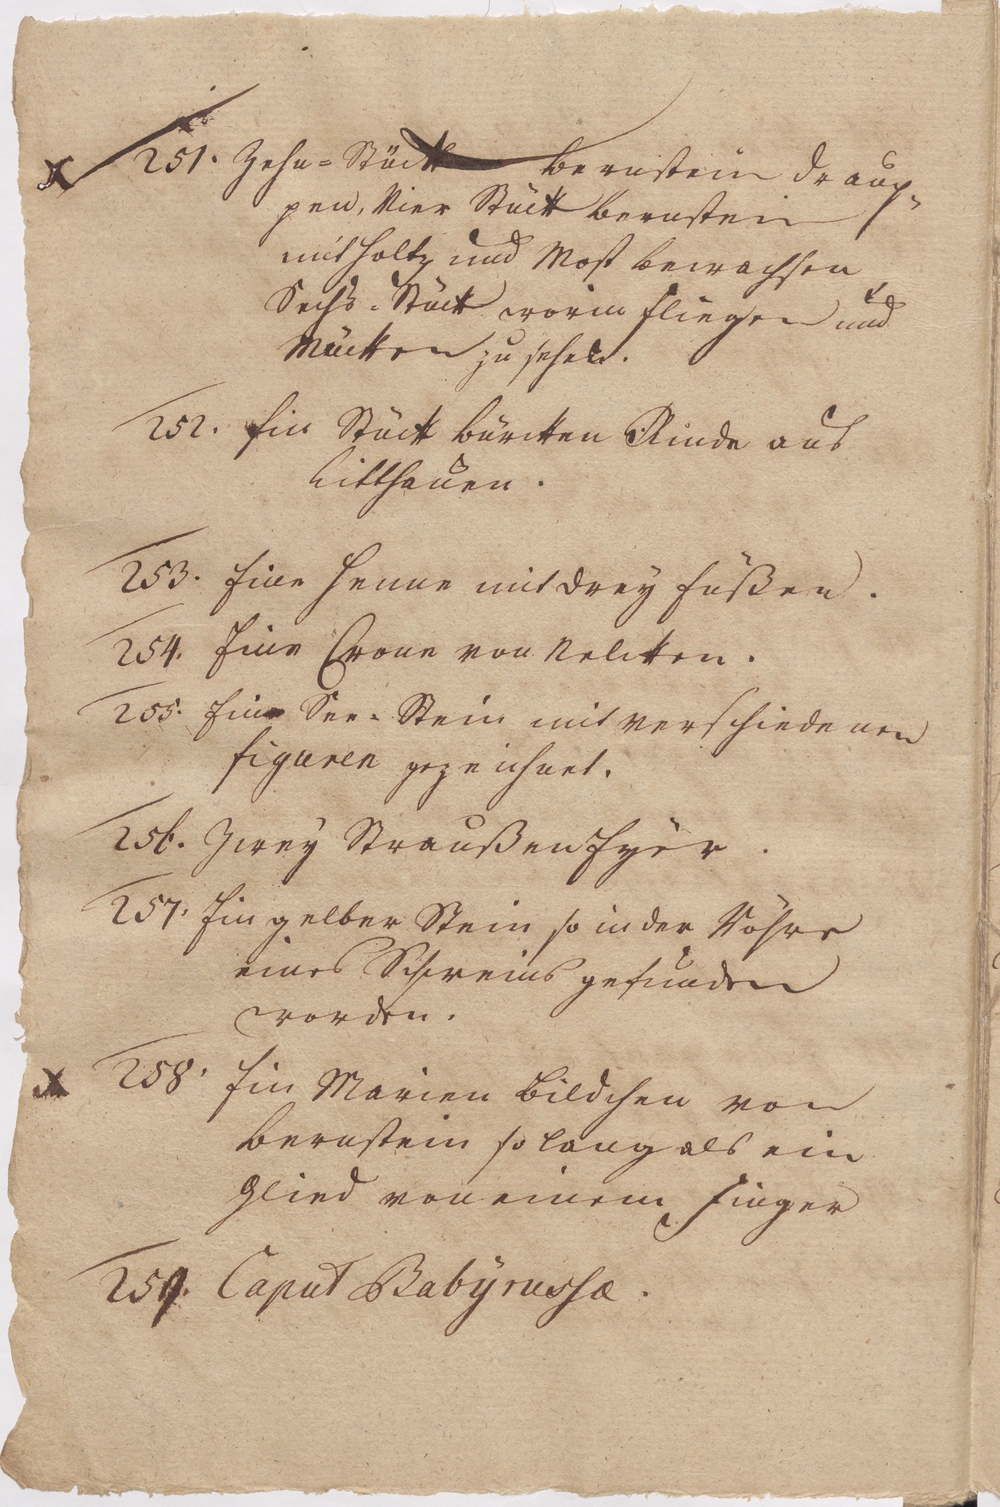 251. Zehn-Stück bernstein draup-
pen, Vier Stück bernstein
mit Holtz und Most bewachsen
Sechs-Stück worin fliegen und
Mücken zu sehen.
252. Ein Stück bürcken Rinde aus
Litthauen.
253. Eine Henne mit drey füßen.
254. Eine Crone von Nelcken.
255. Ein See-Stein mit verschiedenen
figuren gezeichnet.
256. Zwey Straußen Eyer.
257. Ein gelber Stein so in der Röhre
eines Schweins gefunden
worden.
258. Ein Marien bildchen von
bernstein so lang als ein
Glied von einem Finger
259. Caput Babÿrussæ.